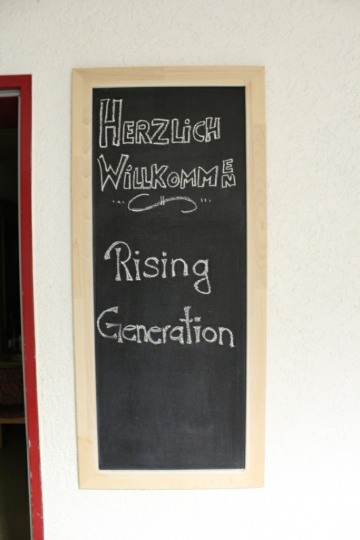 HERZLiCH
WiLLKOMMEN
Rising
Generation